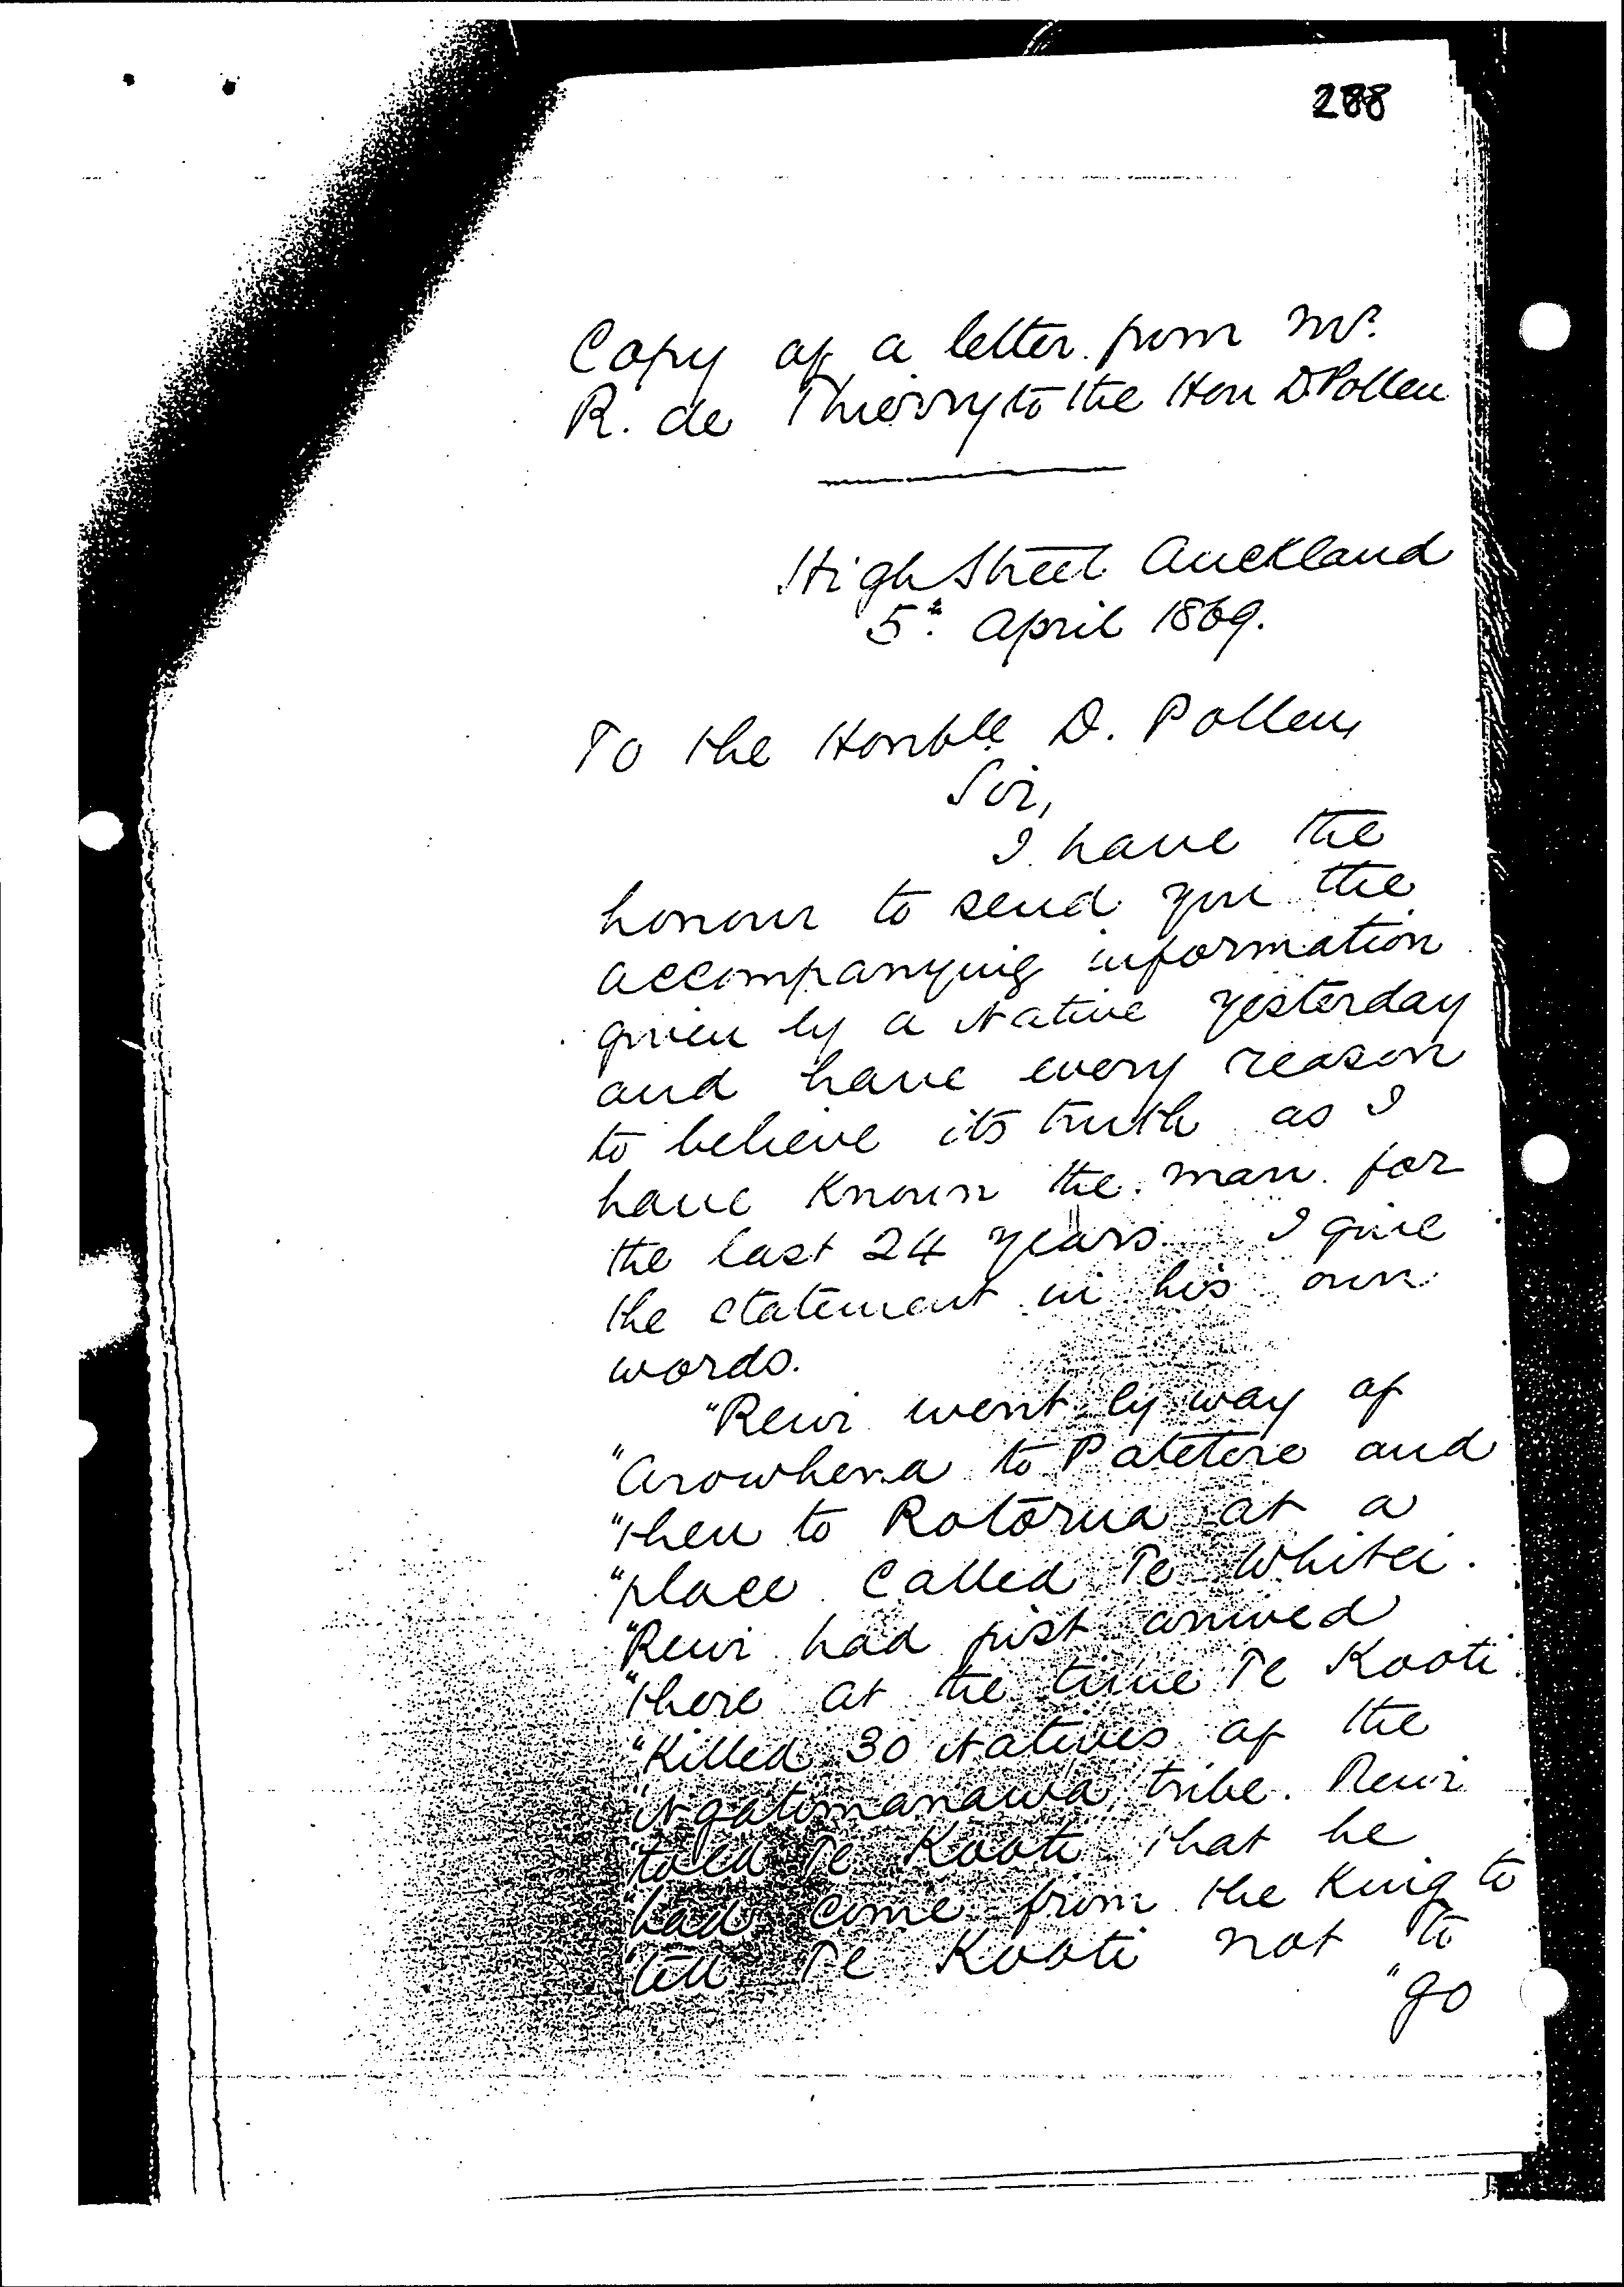 288
Copy of a letter from Mr.
R. de Thierry to the Hon D Pollen
High Street Auckland
5th April 1869.
To the Honble D. Pollen
Sir,
I have the
honour to send you the
accompanying information
given by a Native yesterday
and have every reason
to believe its truth as I
have known the man for
the last 24 years. I give
the statement in his own
words.
"Rewi went by way of
"Arowhena to Patetere and
"then to Rotorua at a
"place called Te Whitei.
"Rewi had just arrived
"there at the time Te Kooti
"Killed 30 Natives of the
"Ngatimanawa tribe. Rewi
"told Te Kooti that he
"had come from the King to
"tell Te Kooti not to
"go